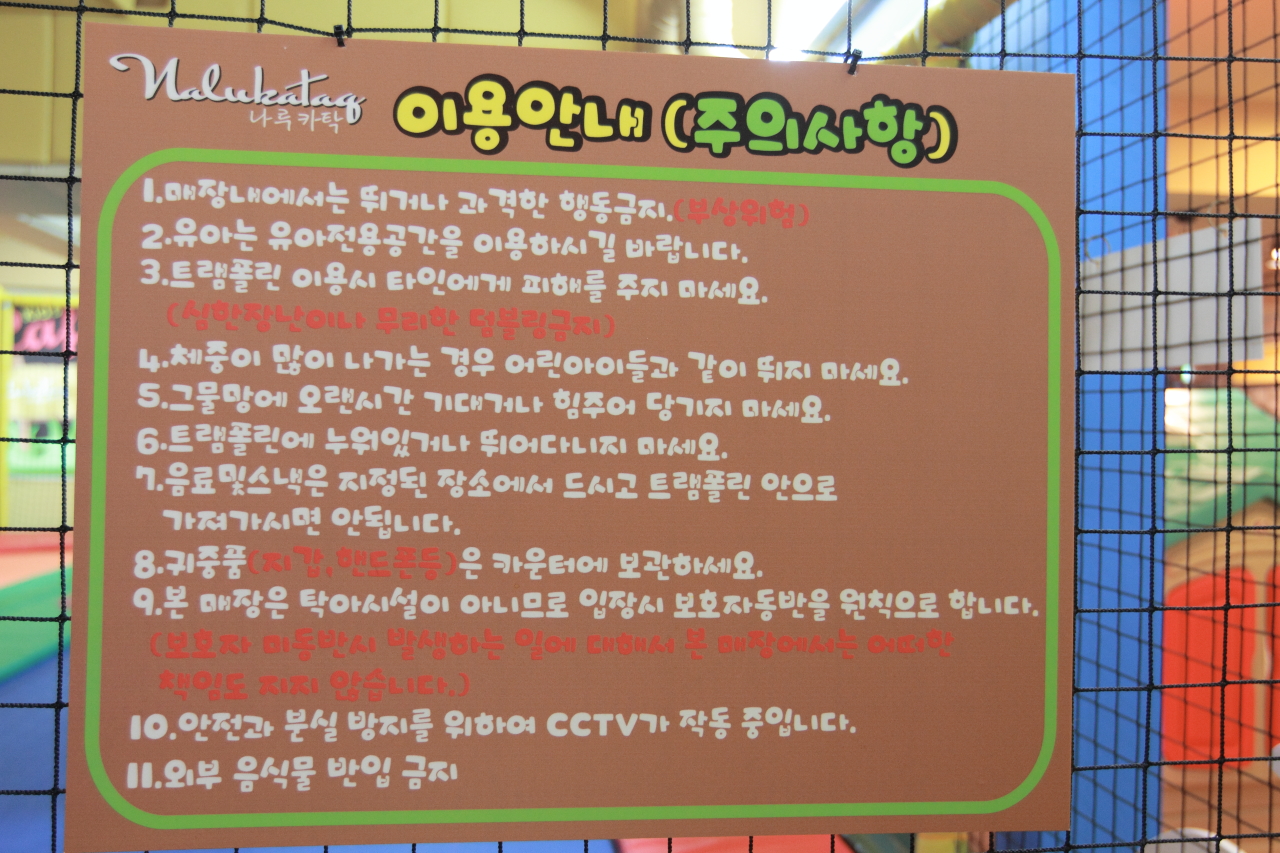 Nalukataq
나루카탁
이용안내 (주의사항)
1.매장내에서는 뛰거나 과격한 행동금지.(부상위험)
2.유아는 유아전용공간을 이용하시길 바랍니다.
3.트램폴린 이용시 타인에게 피해를 주지 마세요.
(심한장난이나 무리한 덤블링금지)
4.체중이 많이 나가는 경우 어린아이들과 같이 뛰지 마세요.
5.그물망에 오랜시간 기대거나 힘주어 당기지 마세요.
6.트램폴린에 누워있거나 뛰어다니지 마세요.
7.음료및스낵은 지정된 장소에서 드시고 트램폴린 안으로
가져가시면 안됩니다.
8.귀중품(지갑,핸드폰등)은 카운터에 보관하세요.
9.본 매장은 탁아시설이 아니므로 입장시 보호자동반을 원칙으로 합니다.
(보호자 미동반시 발생하는 일에 대해서 본 매장에서는 어떠한
책임도 지지 않습니다.)
10.안전과 분실 방지를 위하여 CCTV가 작동 중입니다.
11.외부 음식물 반입 금지